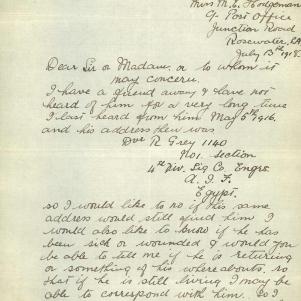 Mrs M. E. Hodgeman
G. Post Office
Junction Road
Rosewater, SA
July 13th 1918
Dear Sir or Madam, or to whom it
may concern.
I have a friend away & have not
heard of him for a very long time
I last heard from him May 5th 1916.
and his address then was
Dvr R Grey 1140
No 1. section
4th Div. Sig Co. Engrs.
A. I. F.
Egypt.
so I would like to no if this same
address would still find him I
would also like to know if he has
been sick or wounded & would you
be able to tell me if he is returning
or something of his whereabouts, so
that if he is still living I may be
able to correspond with him. So I